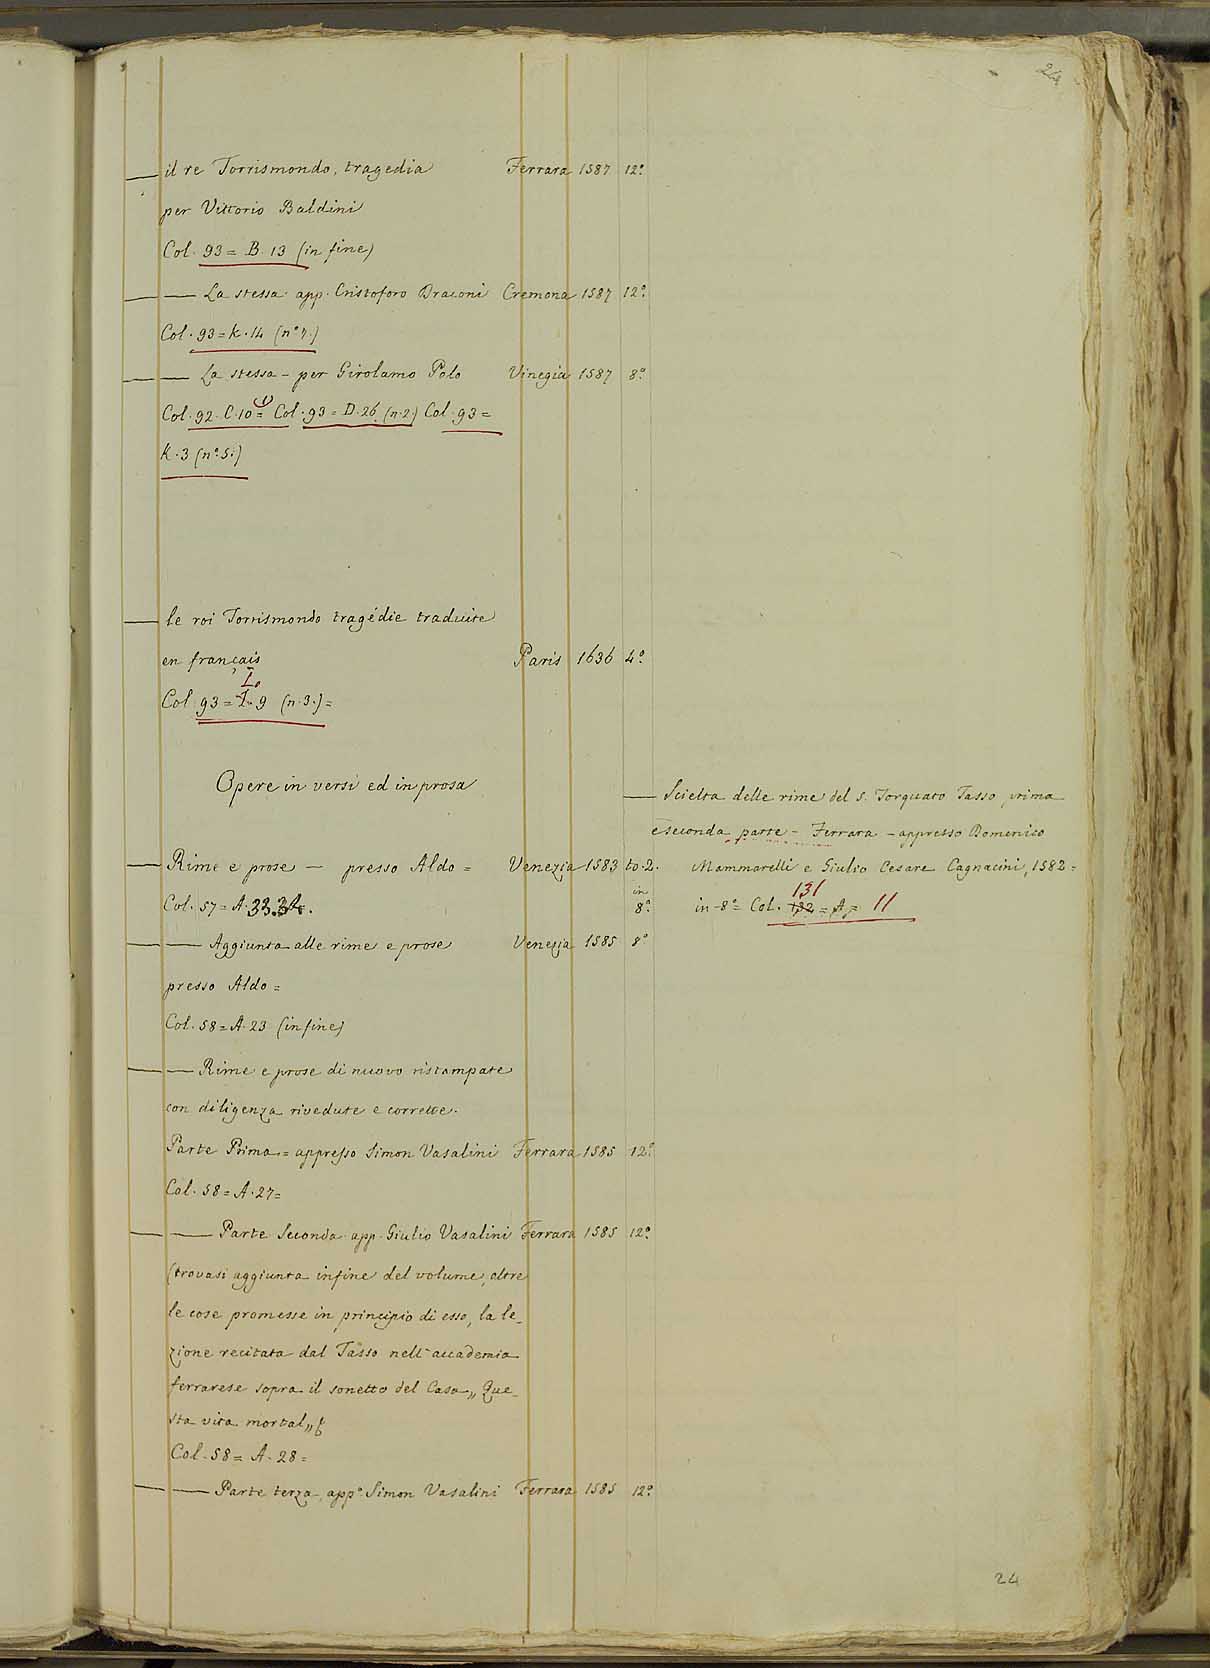 24
— il re Torrismondo, tragedia Ferrara 1587 12.º
per Vittorio Baldini
Col. 93 = B. 13 (in fine)
— — La stessa app. Cristoforo Draconi Cremona 1587 12.º
Col. 93 = K. 14 (nº 7.)
— — La stessa - per Girolamo Polo Vinegia 1587 8.º
Col. 92. C. 10 = Col. 93 = D. 26. (n. 2.) Col. 93 =
K. 3 (nº. 5.)
— le roi Torrismondo tragédie traduite
en français Paris 1636 4.º
I.
Col. 93 = I. 9 (n. 3.) =
Opere in versi ed in prosa
— Rime e prose — presso Aldo = Venezia 1583 to. 2.
in
Col. 57 = A. 33.34. 8.º
— — Aggiunta alle rime e prose Venezia 1585 8.º
presso Aldo =
Col. 58 = A. 23 (in fine)
— — Rime e prose di nuovo ristampate
con diligenza rivedute e corrette.
Parte Prima = appresso Simon Vasalini Ferrara 1585 12.º
Col. 58 = A. 27 =
— — Parte Seconda app. Giulio Vasalini Ferrara 1585 12.º
(trovasi aggiunta in fine del volume, oltre
le cose promesse in principio di esso, la le-
zione recitata dal Tasso nell'accademia
ferrarese sopra il sonetto del Casa „ Que-
sta vita mortal „
Col. 58 = A. 28 =
— — Parte terza, appº Simon Vasalini Ferrara 1585 12.º
— Scielta delle rime del S. Torquato Tasso prima
e seconda parte - Ferrara - appresso Domenico
Mammarelli e Giulio Cesare Cagnacini, 1582 =
131
in-8º = Col. 132 = A = 11
24